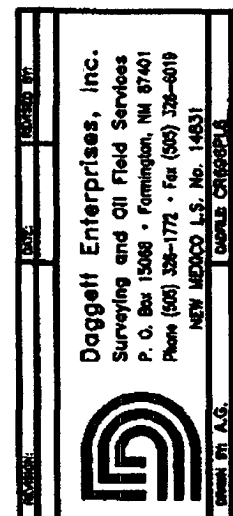 REVISION:
DATE:
REVISED BY:
Daggett Enterprises, Inc.
Surveying and Oil Field Services
P. O. Box 15068 • Farmington, NM 87401
Phone (505) 326-1772 • Fax (505) 326-6019
NEW MEXICO L.S. No. 14831
DRAWN BY: A.G.
CADFILE: CR698PL8